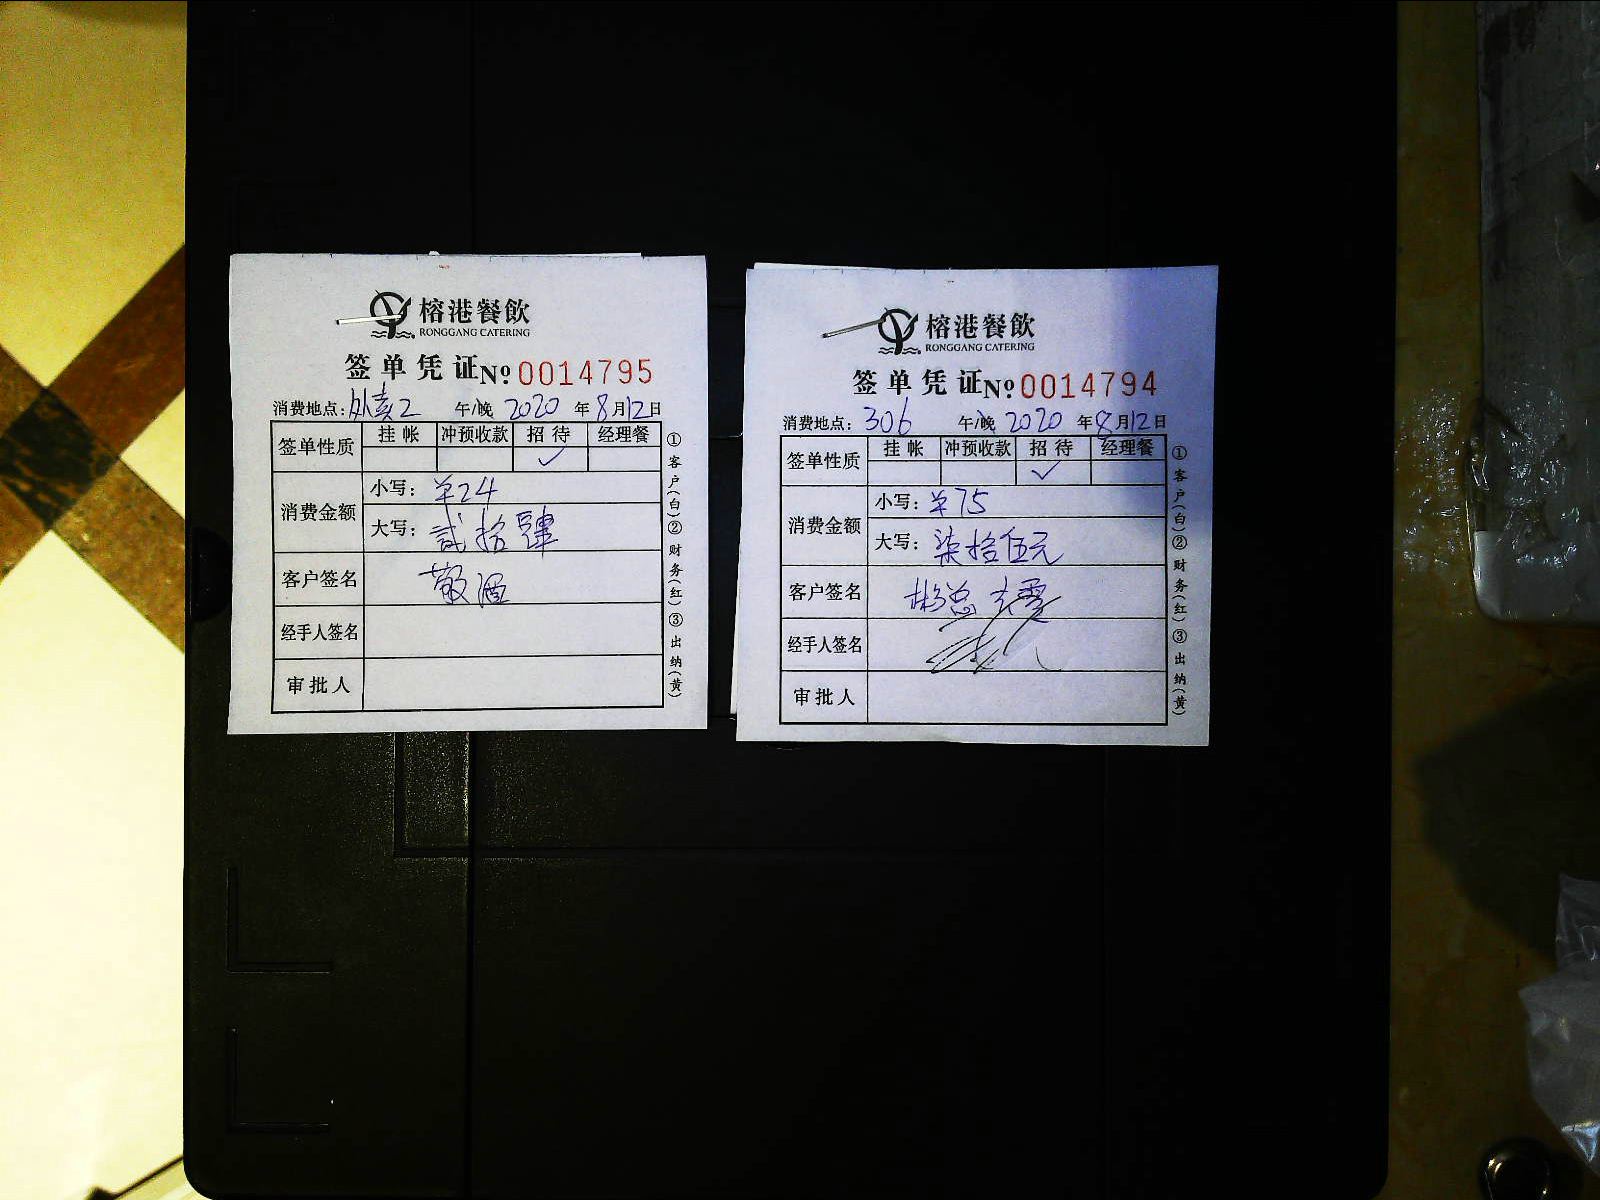 榕港餐飲
RONGGANG CATERING
签单凭证№ 0014795
消费地点：外卖2 午/晚 2020 年 8 月 12 日
签单性质 挂帐 冲预收款 招待 经理餐
✓
消费金额 小写：￥24
大写：贰拾肆
客户签名 敬酒
经手人签名
审批人
①客户（白）②财务（红）③出纳（黄）
榕港餐飲
RONGGANG CATERING
签单凭证№ 0014794
消费地点：306 午/晚 2020 年 8 月 12 日
签单性质 挂帐 冲预收款 招待 经理餐
✓
消费金额 小写：￥75
大写：柒拾伍元
客户签名 彬总
经手人签名
审批人
①客户（白）②财务（红）③出纳（黄）